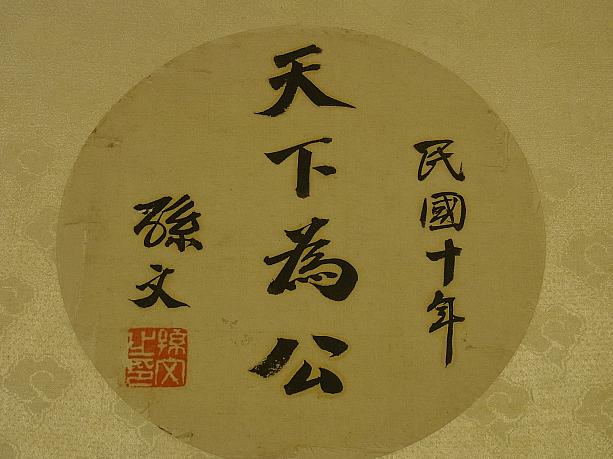 民國十年
天下為公
孫文
孫文之印